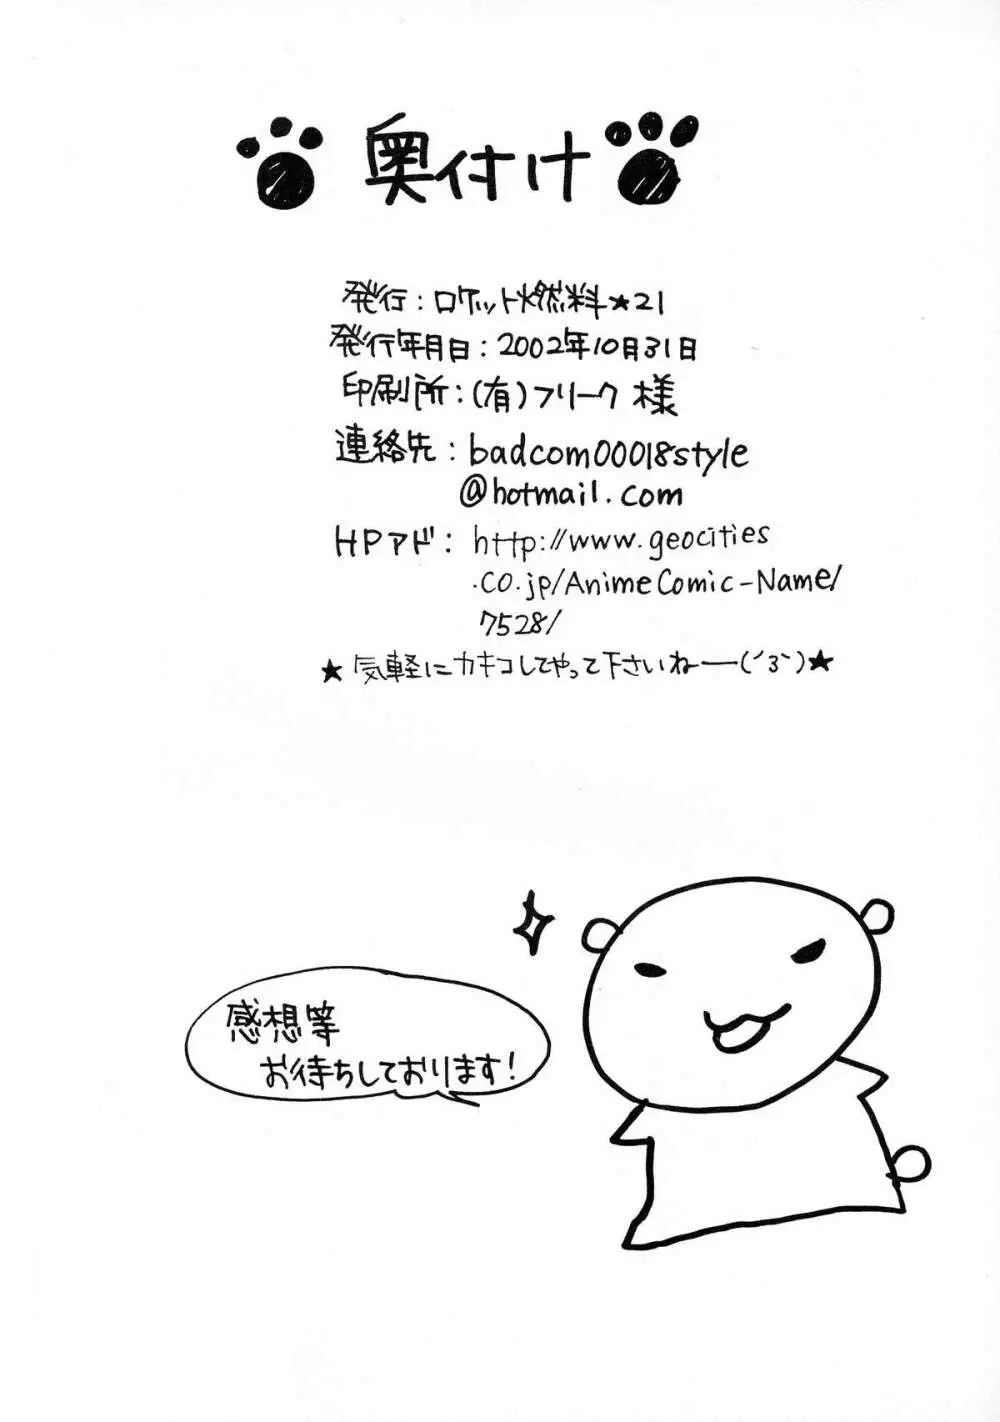 奥付け
発行：ロケット燃料★21
発行年月日：2002年10月31日
印刷所：(有)フリーク 様
連絡先：badcom00018style
@hotmail.com
HPアド：http://www.geocities
.co.jp/AnimeComic-Name/
7528/
★気軽にカキコしてやって下さいねー(´3`)★
感想等
お待ちしております！